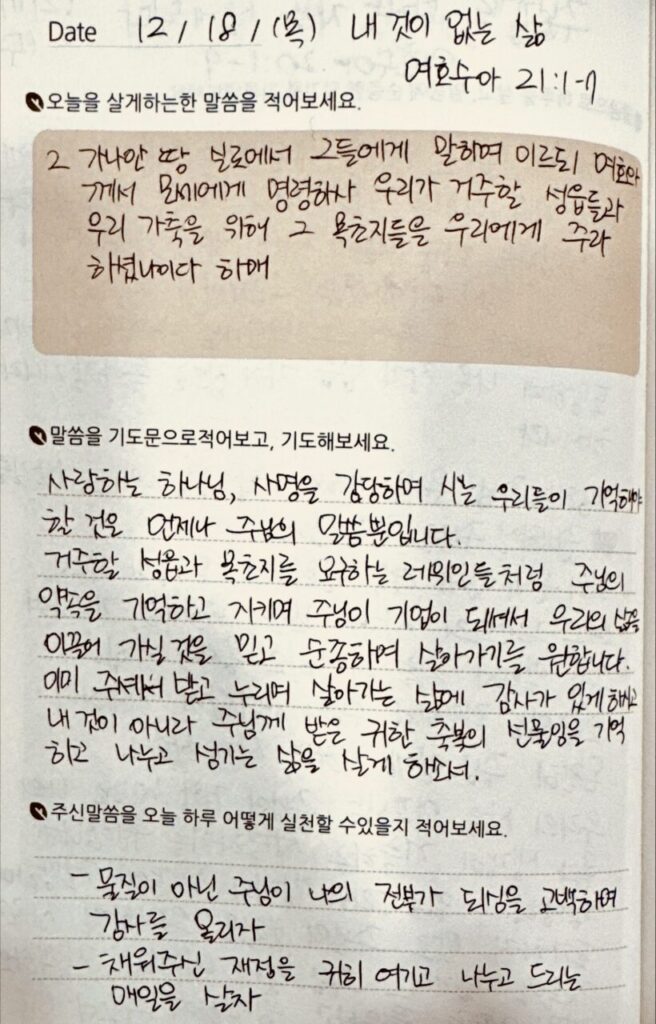 Date 12 / 18 / (목) 내 것이 없는 삶
여호수아 21:1-7
오늘을 살게하는한 말씀을 적어보세요.
2 가나안 땅 실로에서 그들에게 말하여 이르되 여호와
께서 모세에게 명령하사 우리가 거주할 성읍들과
우리 가축을 위해 그 목초지들을 우리에게 주라
하셨나이다 하매
말씀을 기도문으로적어보고, 기도해보세요.
사랑하는 하나님, 사명을 감당하며 사는 우리들이 기억해야
할 것은 언제나 주님의 말씀뿐입니다.
거주할 성읍과 목초지를 요구하는 레위인들처럼 주님의
약속을 기억하고 지키며 주님이 기업이 되셔서 우리의 삶을
이끌어 가실 것을 믿고 순종하며 살아가기를 원합니다.
이미 주셔서 받고 누리며 살아가는 삶에 감사가 있게 하시고
내 것이 아니라 주님께 받은 귀한 축복의 선물임을 기억
하고 나누고 섬기는 삶을 살게 하소서.
주신말씀을 오늘 하루 어떻게 실천할 수있을지 적어보세요.
- 물질이 아닌 주님이 나의 전부가 되심을 고백하며
감사를 올리자
- 채워주신 재정을 귀히 여기고 나누고 드리는
매일을 살자